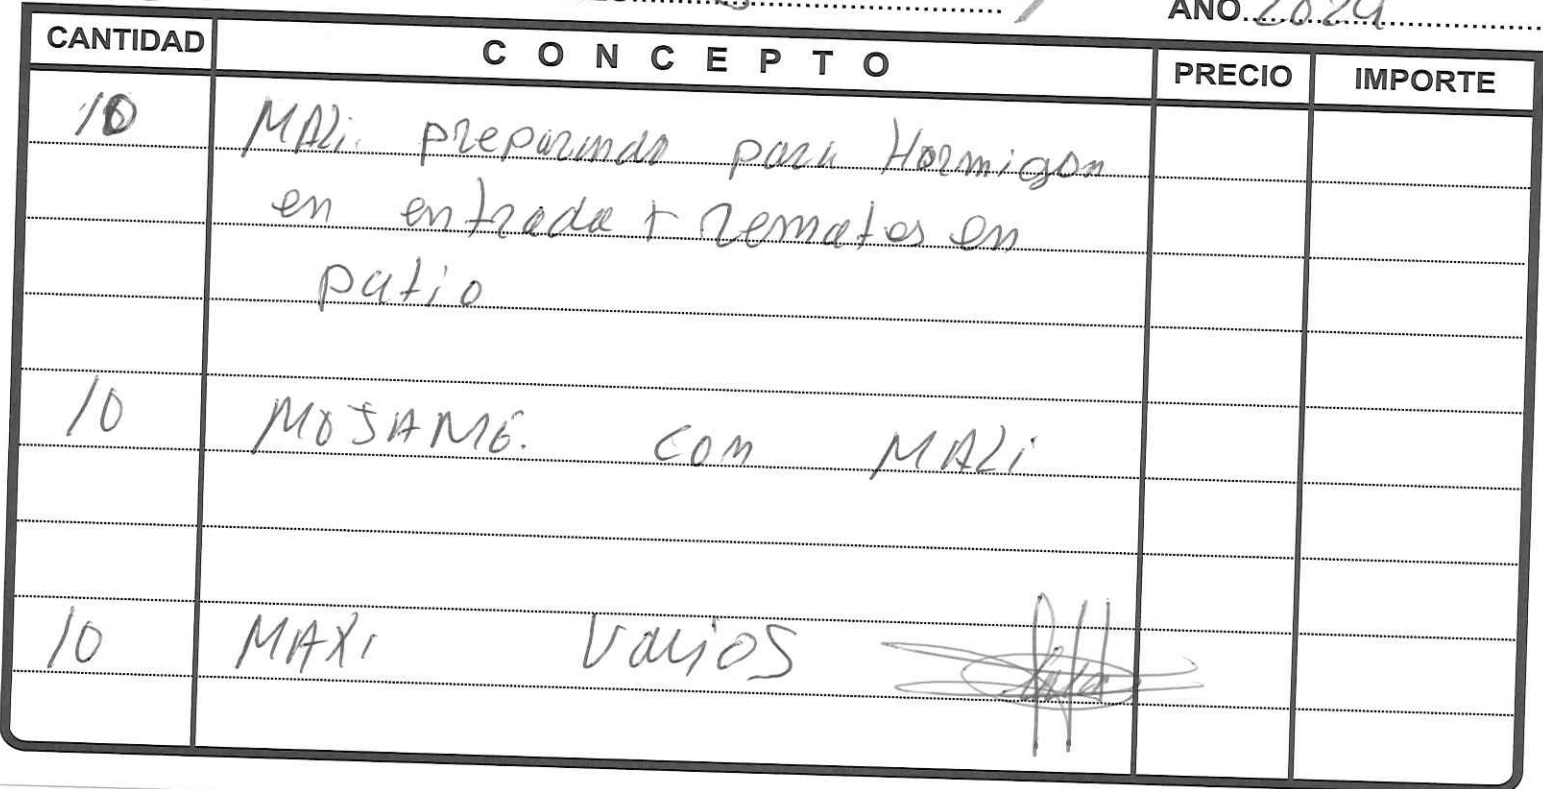 AÑO 2024
CANTIDAD CONCEPTO PRECIO IMPORTE
10 MALi preparando para Hormigon
en entrada + remates en
patio
10 MOJAME. con MALi
10 MAXi Varios